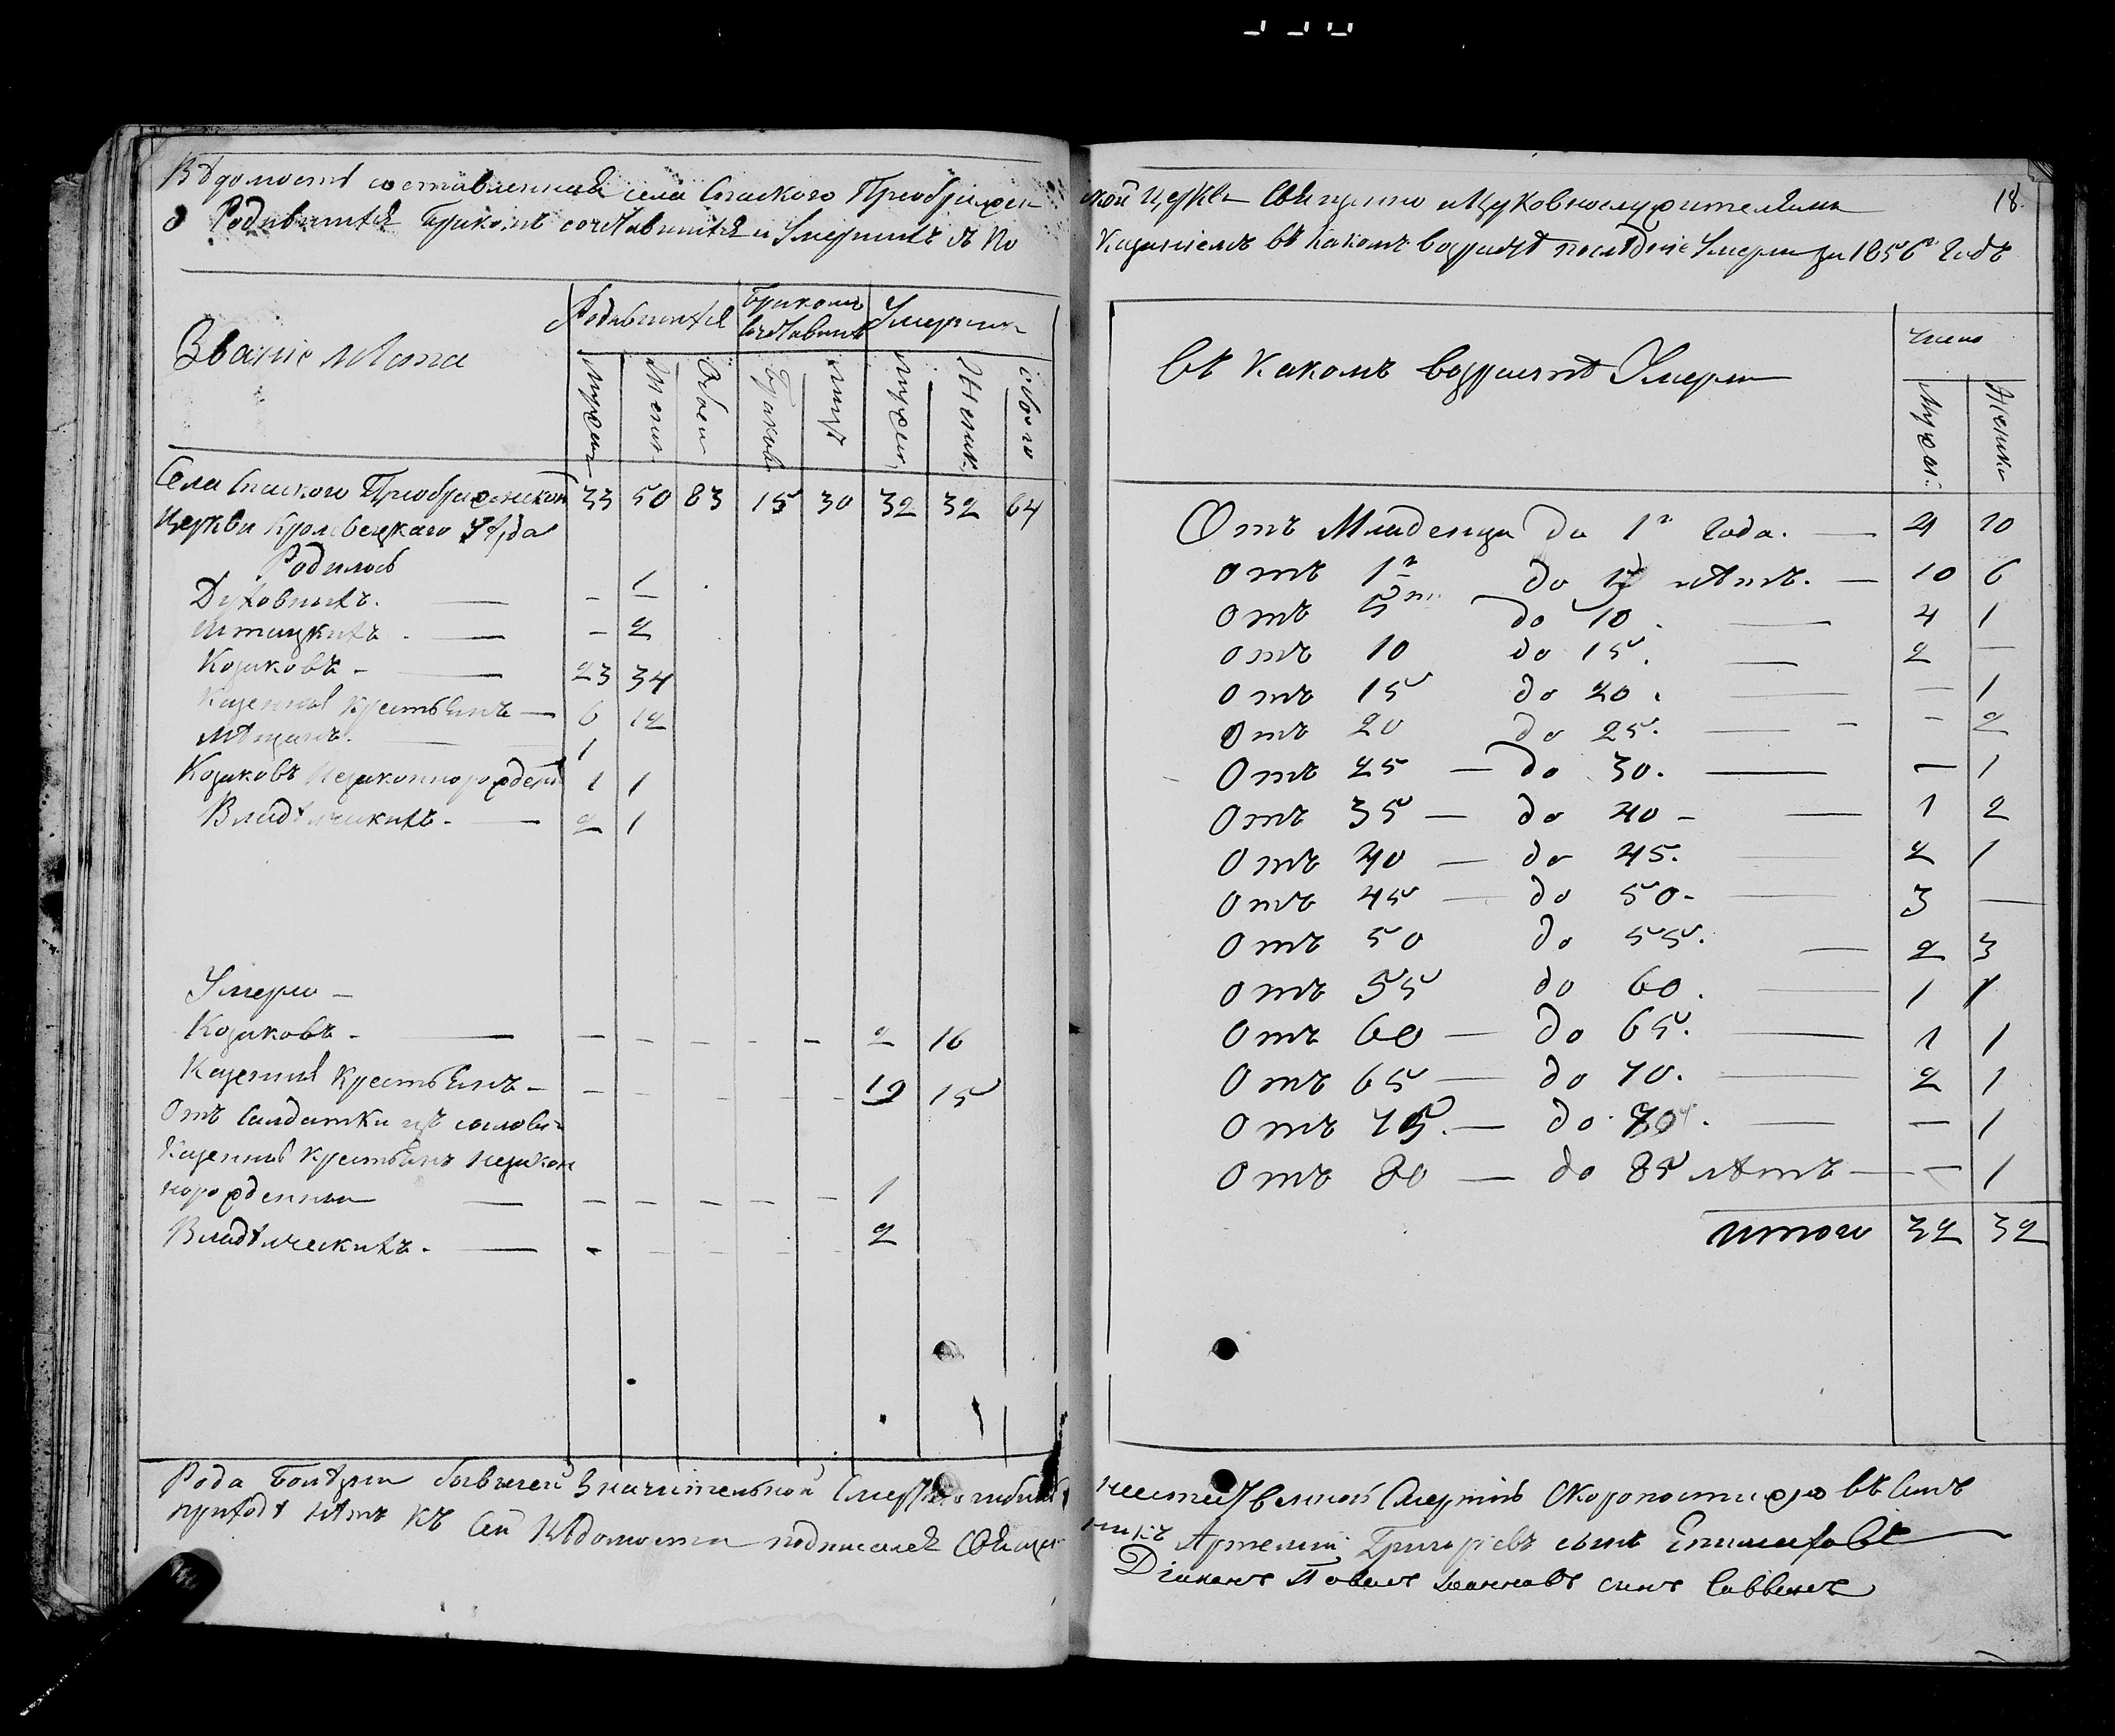 Вѣдомость составленная села Спаского Преображен
ской Церкви Священно и Церковнослужителями
18.
о Родившихся Бракомъ сочетавшихся и Умершихъ съ по
казаніемъ въ какомъ возрастѣ послѣдніе Умерли за 1856й Годъ
Званіе мѣста
Родившихся
Бракомъ сочетавших
Умерших
Мужеск
Женск
Обоего
Браковъ
лицъ
Мужеск
Женск.
обоего
Села Спаского Преображенской 33 50 83 15 30 32 32 64
Церкви Кролевецкаго Уѣзда
Родилось
Духовныхъ. — - 1
Штатскихъ. — - 2
Козаковъ - — 23 34
Казенныхъ крестьянъ — 6 12
мѣщанъ. — 1
Козаковъ незаконнорожден 1 1
Владѣлческихъ - — 2 1
Умерло -
Козаковъ - — - - - - - 2 16
Казенныхъ крестьянъ - - - - - - 19 15
Отъ Салдатки изъ сословія
Казенныхъ крестьянъ незакон
норожденныхъ — - - - - - 1
Владѣлческихъ. — - - - - - 2
Рода болѣзни бывшей значительной Смер
приходѣ нѣтъ Къ сей Вѣдомости подписался Священ
Въ какомъ возрастѣ Умерли
число
Мужеск.
Женск
Отъ Младенца до 1го года. — 4 10
отъ 1го до 5 лѣтъ. — 10 6
отъ 5ти до 10. — 4 1
отъ 10 до 15. — 2 —
отъ 15 до 20. — — 1
отъ 20 до 25. — - 2
Отъ 25 — до 30. — — 1
Отъ 35 — до 40 - — 1 2
Отъ 40 — до 45. — 2 1
Отъ 45 — до 50 - — 3 —
Отъ 50 до 55. — 2 3
отъ 55 до 60. — 1 1
Отъ 60 — до 65. — 1 1
Отъ 65 — до 70. — 2 1
Отъ 75. — до 80. — — 1
Отъ 80 — до 85 лѣтъ — — 1
итого 32 32
Смертію Скоропостижно въ семъ
никъ Артемій Григорьевъ сынъ
Діаконъ Павелъ Іоанновъ сынъ Саввенко